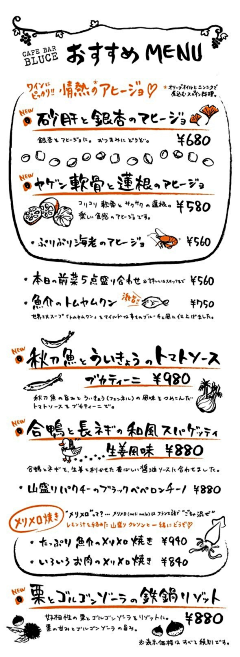 CAFE BAR
BLUCE
おすすめ MENU
ワインに
ピッタリ!!
情熱のアヒージョ♡
*オリーブオイルとニンニクで
煮込むスペイン料理。
NEW
砂肝と銀杏のアヒージョ
¥680
NEW
ヤゲン軟骨と蓮根のアヒージョ
コリコリ軟骨とサクサクの蓮根。
楽しい食感のアヒージョです。
¥580
・ぷりぷり海老のアヒージョ ¥560
・本日の前菜5点盛り合わせ ¥560
・魚介のトムヤムクン
NEW
秋刀魚とういきょうのトマトソース
ブカティーニ ¥980
秋刀魚の旨みとういきょう(フェンネル)の風味をつめこんだ
トマトソースとブカティーニで。
NEW
合鴨と長ネギの和風スパゲッティ
生姜風味 ¥880
合鴨とネギと、生姜をおりまぜた香ばしい醤油ソースに合わせました。
・山盛りパクチーのブラックペペロンチーノ ¥880
メリメロ焼き
"メリメロ"って?…
フランス語で"ごちゃ混ぜ"
・たっぷり魚介のメリメロ焼き ¥990
・いろいろお肉のメリメロ焼き ¥840
NEW
栗とゴルゴンゾーラの鉄鍋リゾット
好相性の栗とゴルゴンゾーラをリゾットに。
栗の甘みとゴルゴンゾーラの旨み。
¥880
※表示価格はすべて税別です。